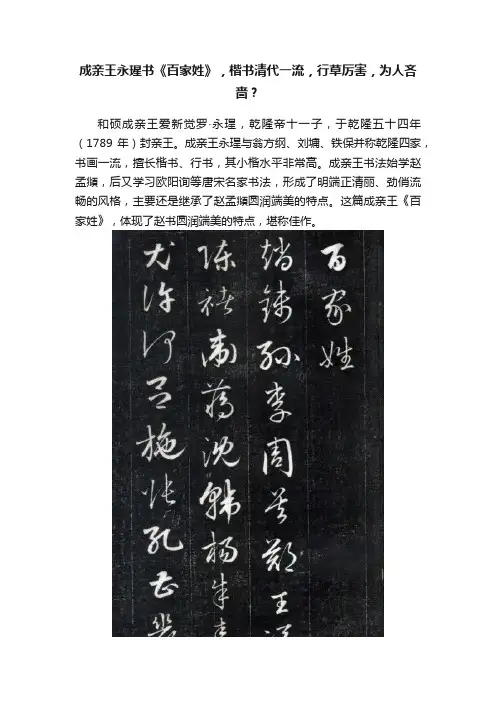 成亲王永瑆书《百家姓》，楷书清代一流，行草厉害，为人吝
啬？
和硕成亲王爱新觉罗·永瑆，乾隆帝十一子，于乾隆五十四年
（1789 年）封亲王。成亲王永瑆与翁方纲、刘墉、铁保并称乾隆四家，
书画一流，擅长楷书、行书，其小楷水平非常高。成亲王书法始学赵
孟頫，后又学习欧阳询等唐宋名家书法，形成了明端正清丽、劲俏流
畅的风格，主要还是继承了赵孟頫圆润端美的特点。这篇成亲王《百
家姓》，体现了赵书圆润端美的特点，堪称佳作。
百家姓
趙錢孫李周吳鄭王
陳褚衛蔣沈韓楊朱
尤許何呂施張孔曹